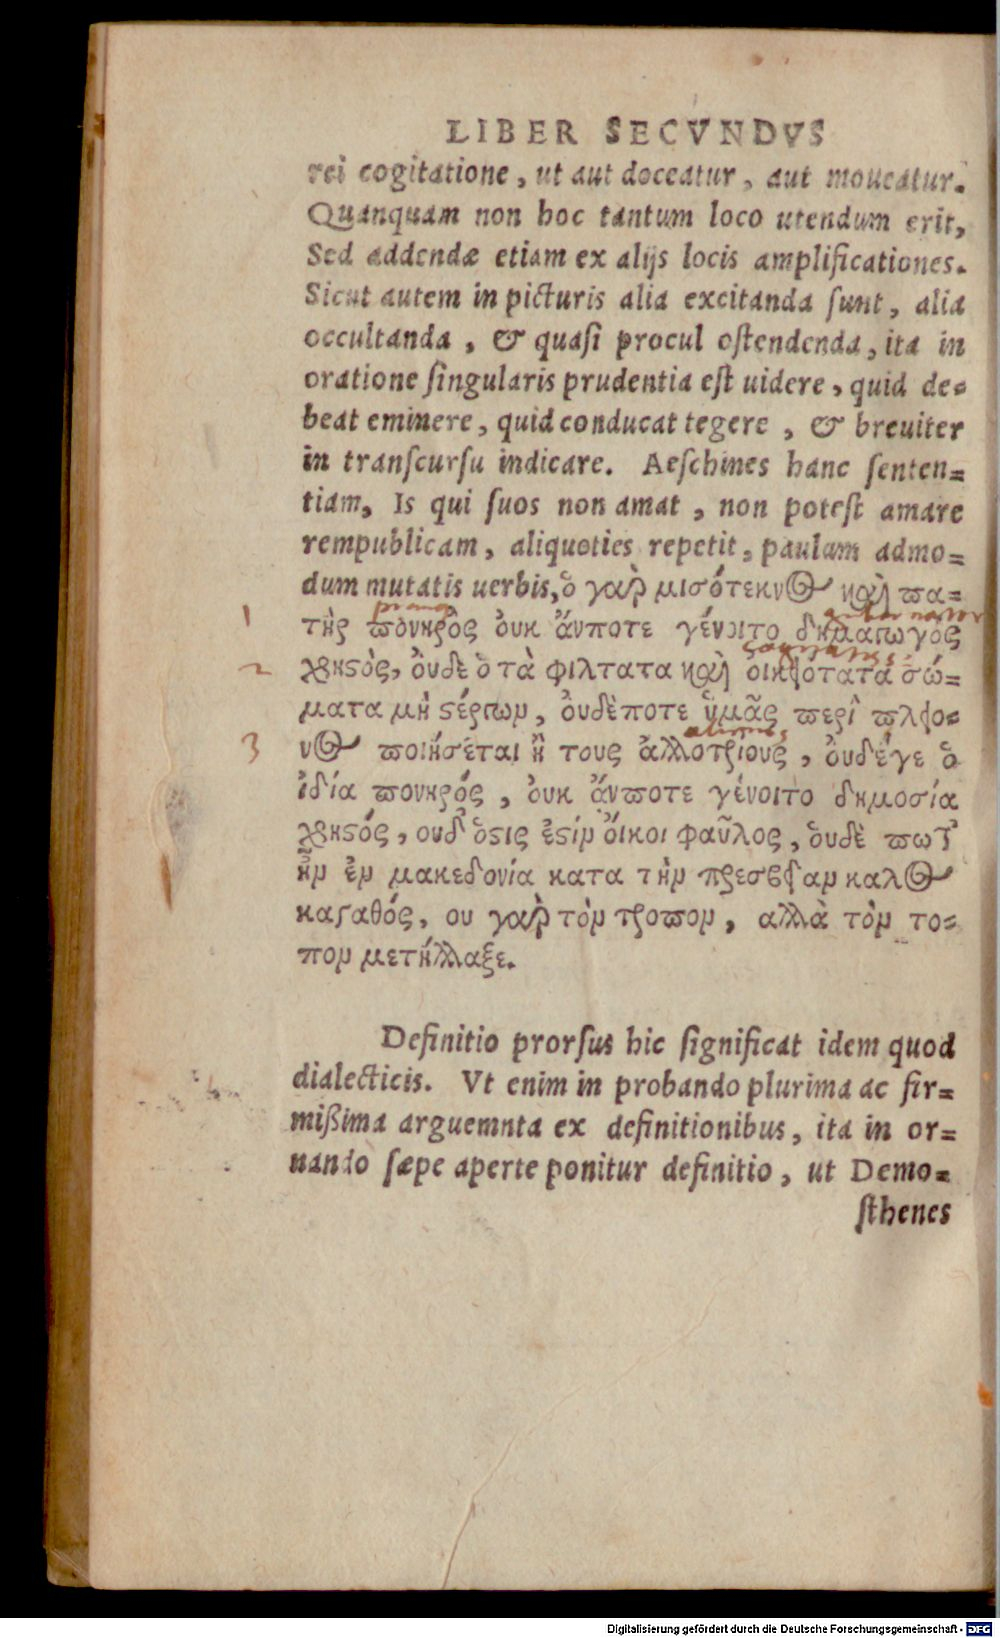 LIBER SECVNDVS
rei cogitatione, ut aut doceatur, aut moueatur.
Quanquam non hoc tantum loco utendum erit,
Sed addendæ etiam ex alijs locis amplificationes.
Sicut autem in picturis alia excitanda ſunt, alia
occultanda, & quaſi procul oſtendenda, ita in
oratione ſingularis prudentia eſt uidere, quid de=
beat eminere, quid conducat tegere, & breuiter
in tranſcurſu indicare. Aeſchines hanc ſenten=
tiam, Is qui ſuos non amat, non poteſt amare
rempublicam, aliquoties repetit, paulum admo=
dum mutatis uerbis, ὁ γαρ̀ μισότεκνος καὶ πα=
1 τὴρ πονηρὸς ὀυκ ἄνποτε γένοιτο δημαγωγὸς
2 χρηςὸς, ὀυδε ὁ τὰ φιλτατα καὶ οικειότατα σώ=
ματα μὴ ςέργων, ὀυδὲποτε ὑμᾶς περὶ πλείο=
3 νος ποιήσεται ἢ τους ἀλλοτρίους, ὀυδέγε ὁ
ἰδία πονηρός, ὀυκ ἄνποτε γένοιτο δημοσία
χρηςός, ουδ' ὅςις ἐςὶν ὄικοι φαῦλος, ὁυδὲ πωτ'
ἦν ἐν μακεδονία κατα τὴν πρεσβείαν καλος
καγαθός, ου γαρ̀ τὸν τροπον, αλλὰ τὸν το=
πον μετήλλαξε.
Definitio prorſus hic ſignificat idem quod
dialecticis. Vt enim in probando plurima ac fir=
mißima arguemnta ex definitionibus, ita in or=
nando ſæpe aperte ponitur definitio, ut Demo=
ſthenes
Digitalisierung gefördert durch die Deutsche Forschungsgemeinschaft - DFG